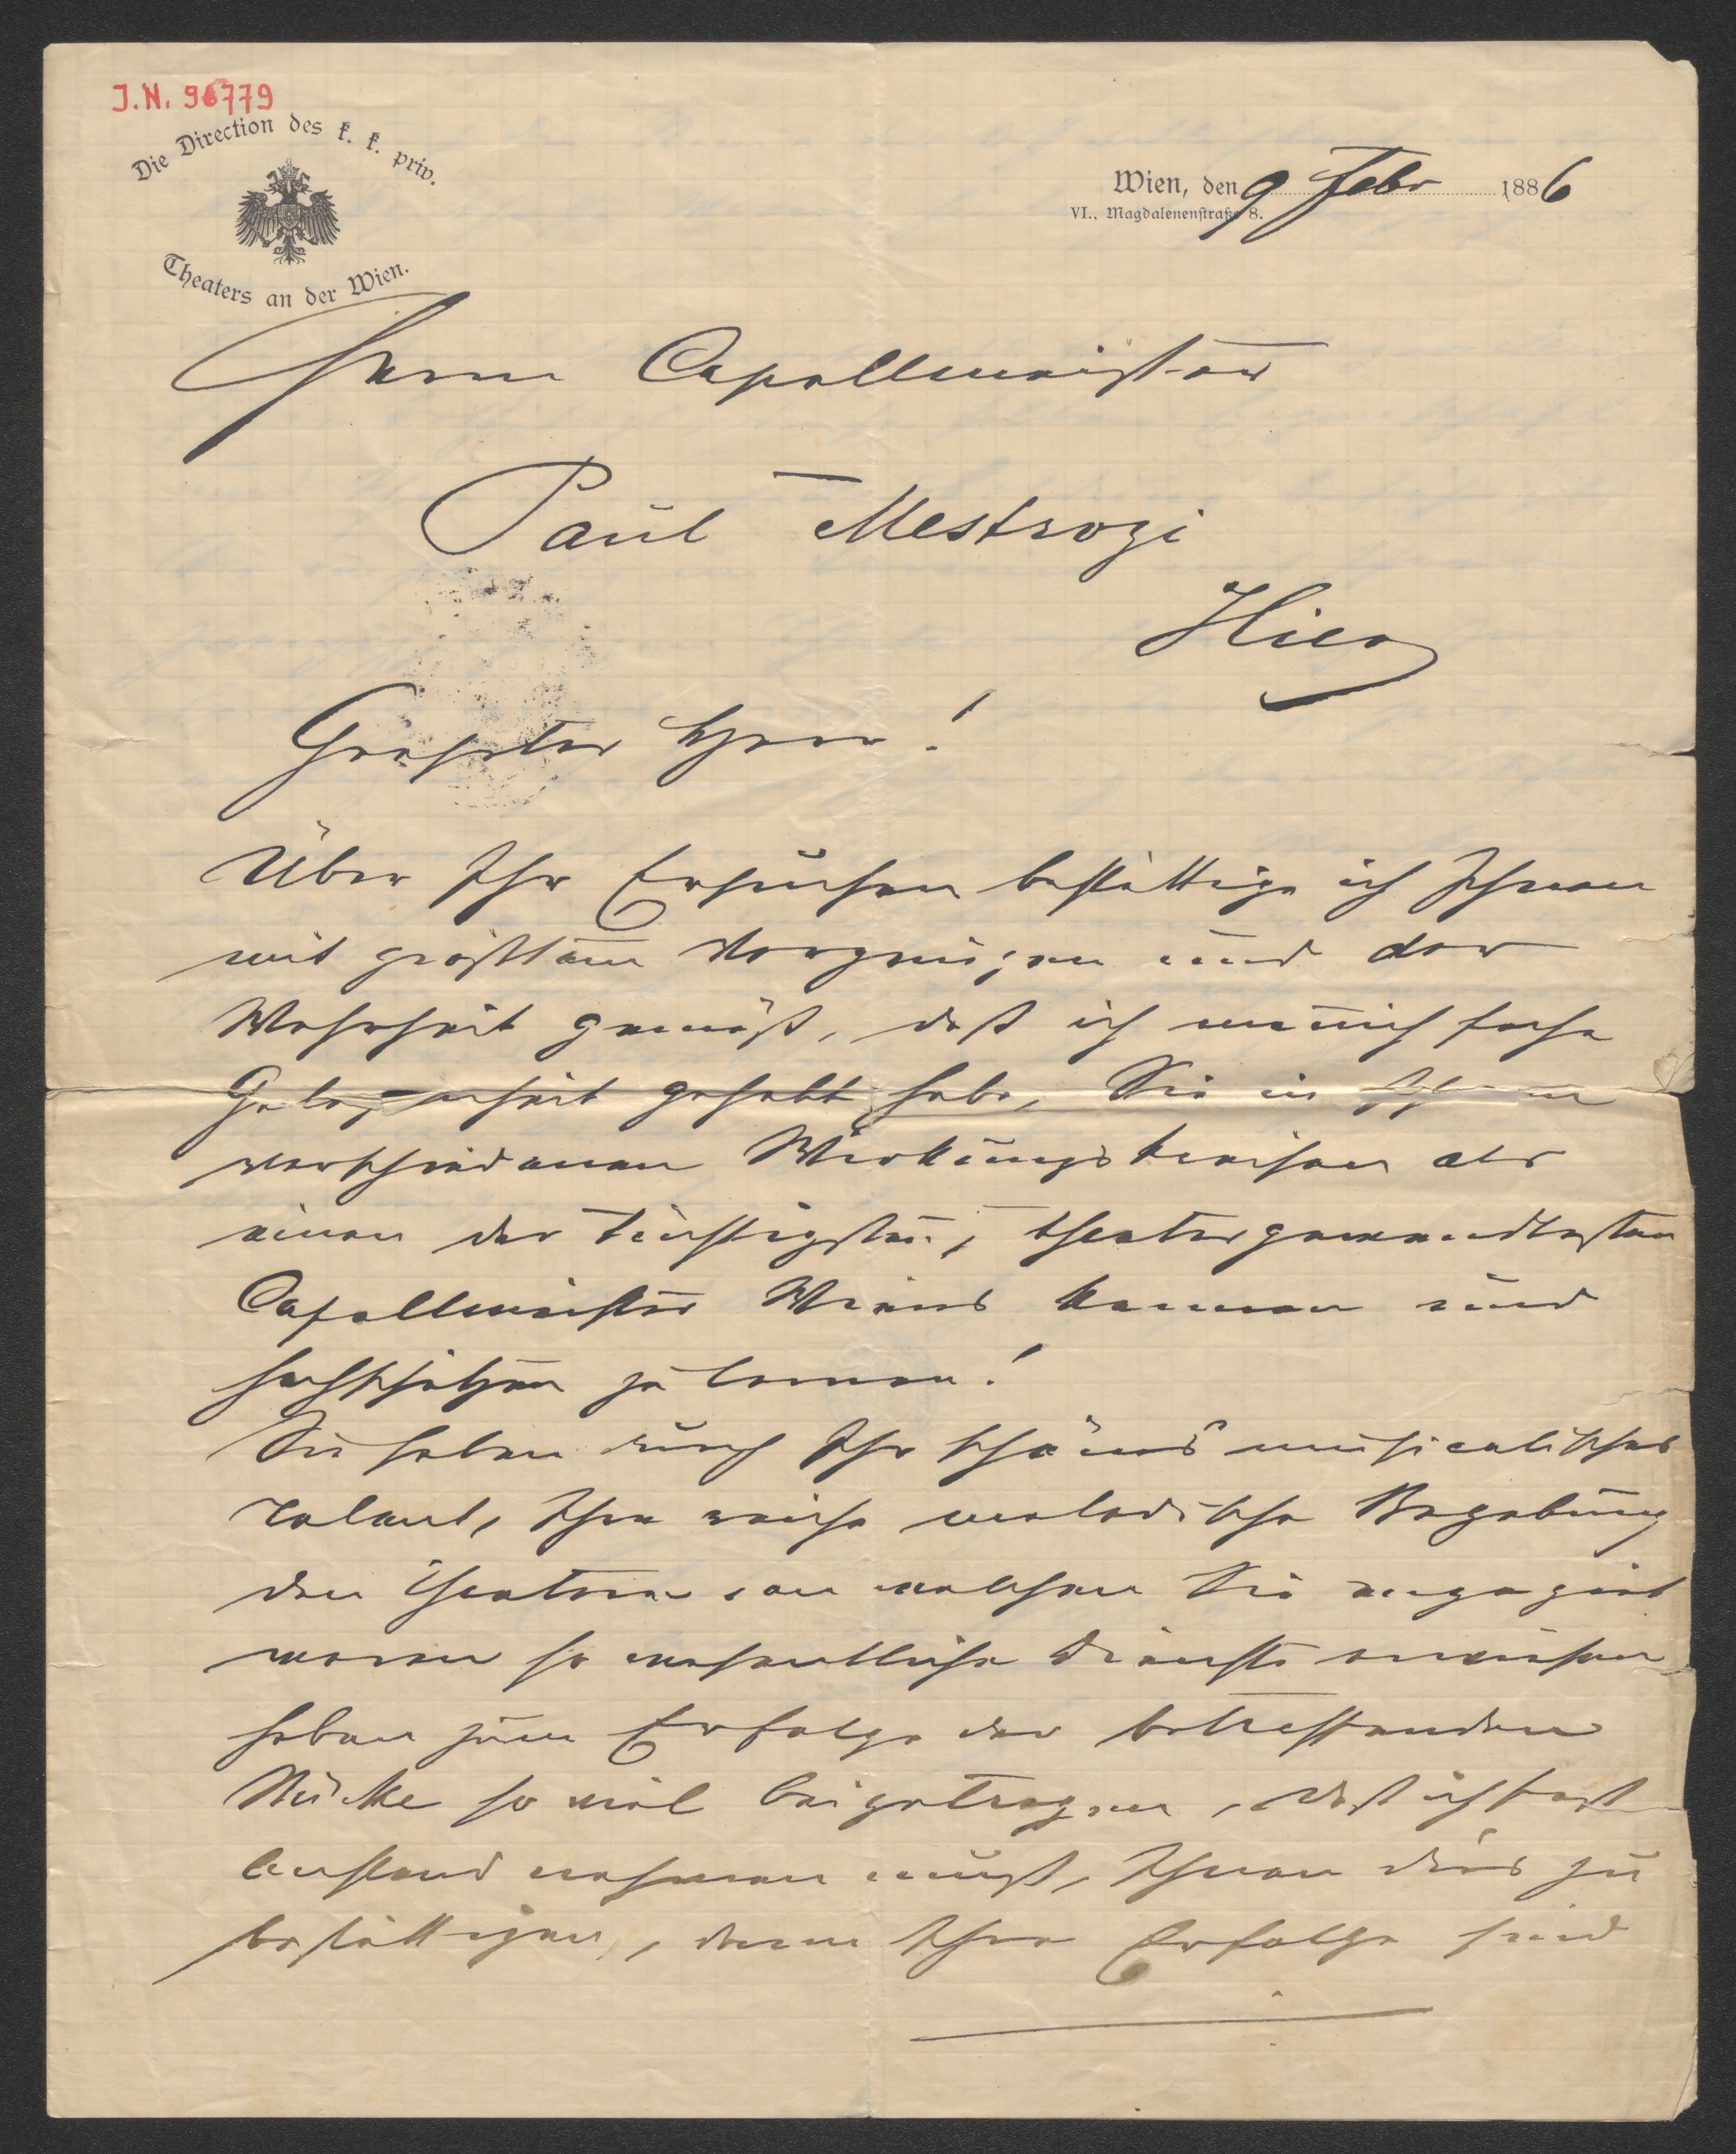 J.N. 96779
Die Direction des k. k. priv.
Theaters an der Wien.
Wien, den 9 Febr 1886
VI., Magdalenenstraße 8.
Herrn Capellmeister
Paul Mestrozi
Hier
Geehrter Herr!
Über Ihr Ersuchen bestättige ich Ihnen
mit größtem Vergnügen und der
Wahrheit gemäß, daß ich mannichfache
Gelegenheit gehabt habe, Sie in Ihren
verschiedenen Wirkungskreisen als
einen der tüchtigsten, theatergewandtesten
Capellmeister Wiens kennen und
hochschätzen zu lernen!
Sie haben durch Ihr schönes musicalisches
Talent, Ihre reiche melodische Begabung
den Theatern an welchen Sie engagirt
waren so wesentliche Dienste erwiesen
haben zum Erfolge der betreffenden
Stücke so viel beigetragen, daß ich fast
Anstand nehmen muß, Ihnen dies zu
bestättigen, denn Ihre Erfolge sind